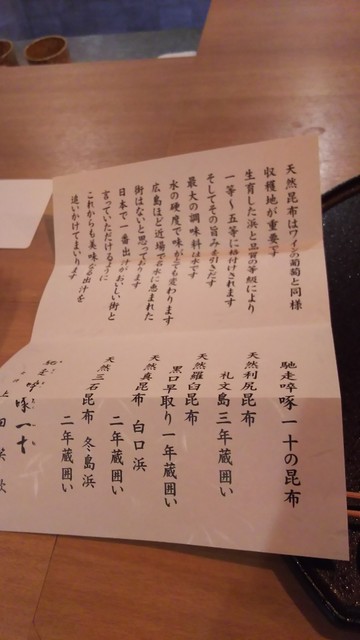 天然昆布はワインの葡萄と同様
収穫地が重要です
生育した浜と品質の等級により
一等～五等に格付けされます
そしてその旨みを引きだす
最大の調味料は水です
水の硬度で味がとても変わります
広島ほど近場で名水に恵まれた
街はないと思っております
日本で一番出汁がおいしい街と
言っていただけるように
これからも美味なる出汁を
追いかけてまいります
馳走啐啄一十の昆布
天然利尻昆布
礼文島三年蔵囲い
天然羅臼昆布
黒口早取り一年蔵囲い
天然真昆布 白口浜
二年蔵囲い
天然三石昆布 冬島浜
二年蔵囲い
馳走啐啄一十